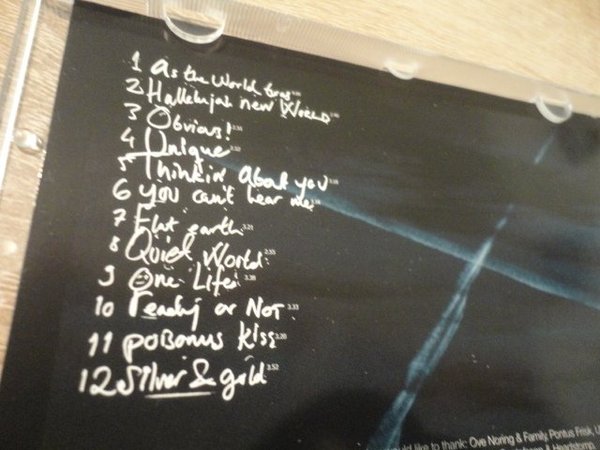 1 As the World turns
2 Hallelujah new World
3 Obvious!
4 Unique 3.52
5 Thinkin' About you
6 you can't hear me
7 Flat earth 3.21
8 Quiet World 2.55
9 One Life 3.28
10 ready or Not 3.33
11 poisonus kiss 3.26
12 Silver & gold 3.52
like to thank: Ove Noring & Family, Pontus Frisk,
& Headstomp,